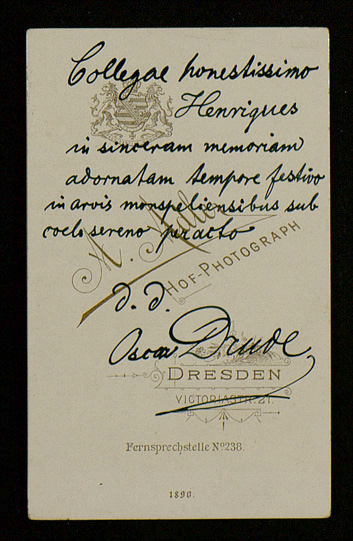 Collegae honestissimo
Henriques
in sinceram memoriam
adornatam tempore festivo
in arvis monspeliensibus sub
coelo sereno peracto
HOF-PHOTOGRAPH
d. d.
Oscar Drude
DRESDEN
VICTORIASTR. 21.
Fernsprechstelle No 238.
1890.